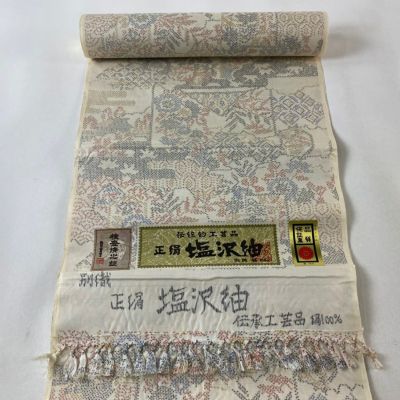 伝統的工芸品
正絹 塩沢紬
別織
正絹 塩沢紬
伝承工芸品 絹100%